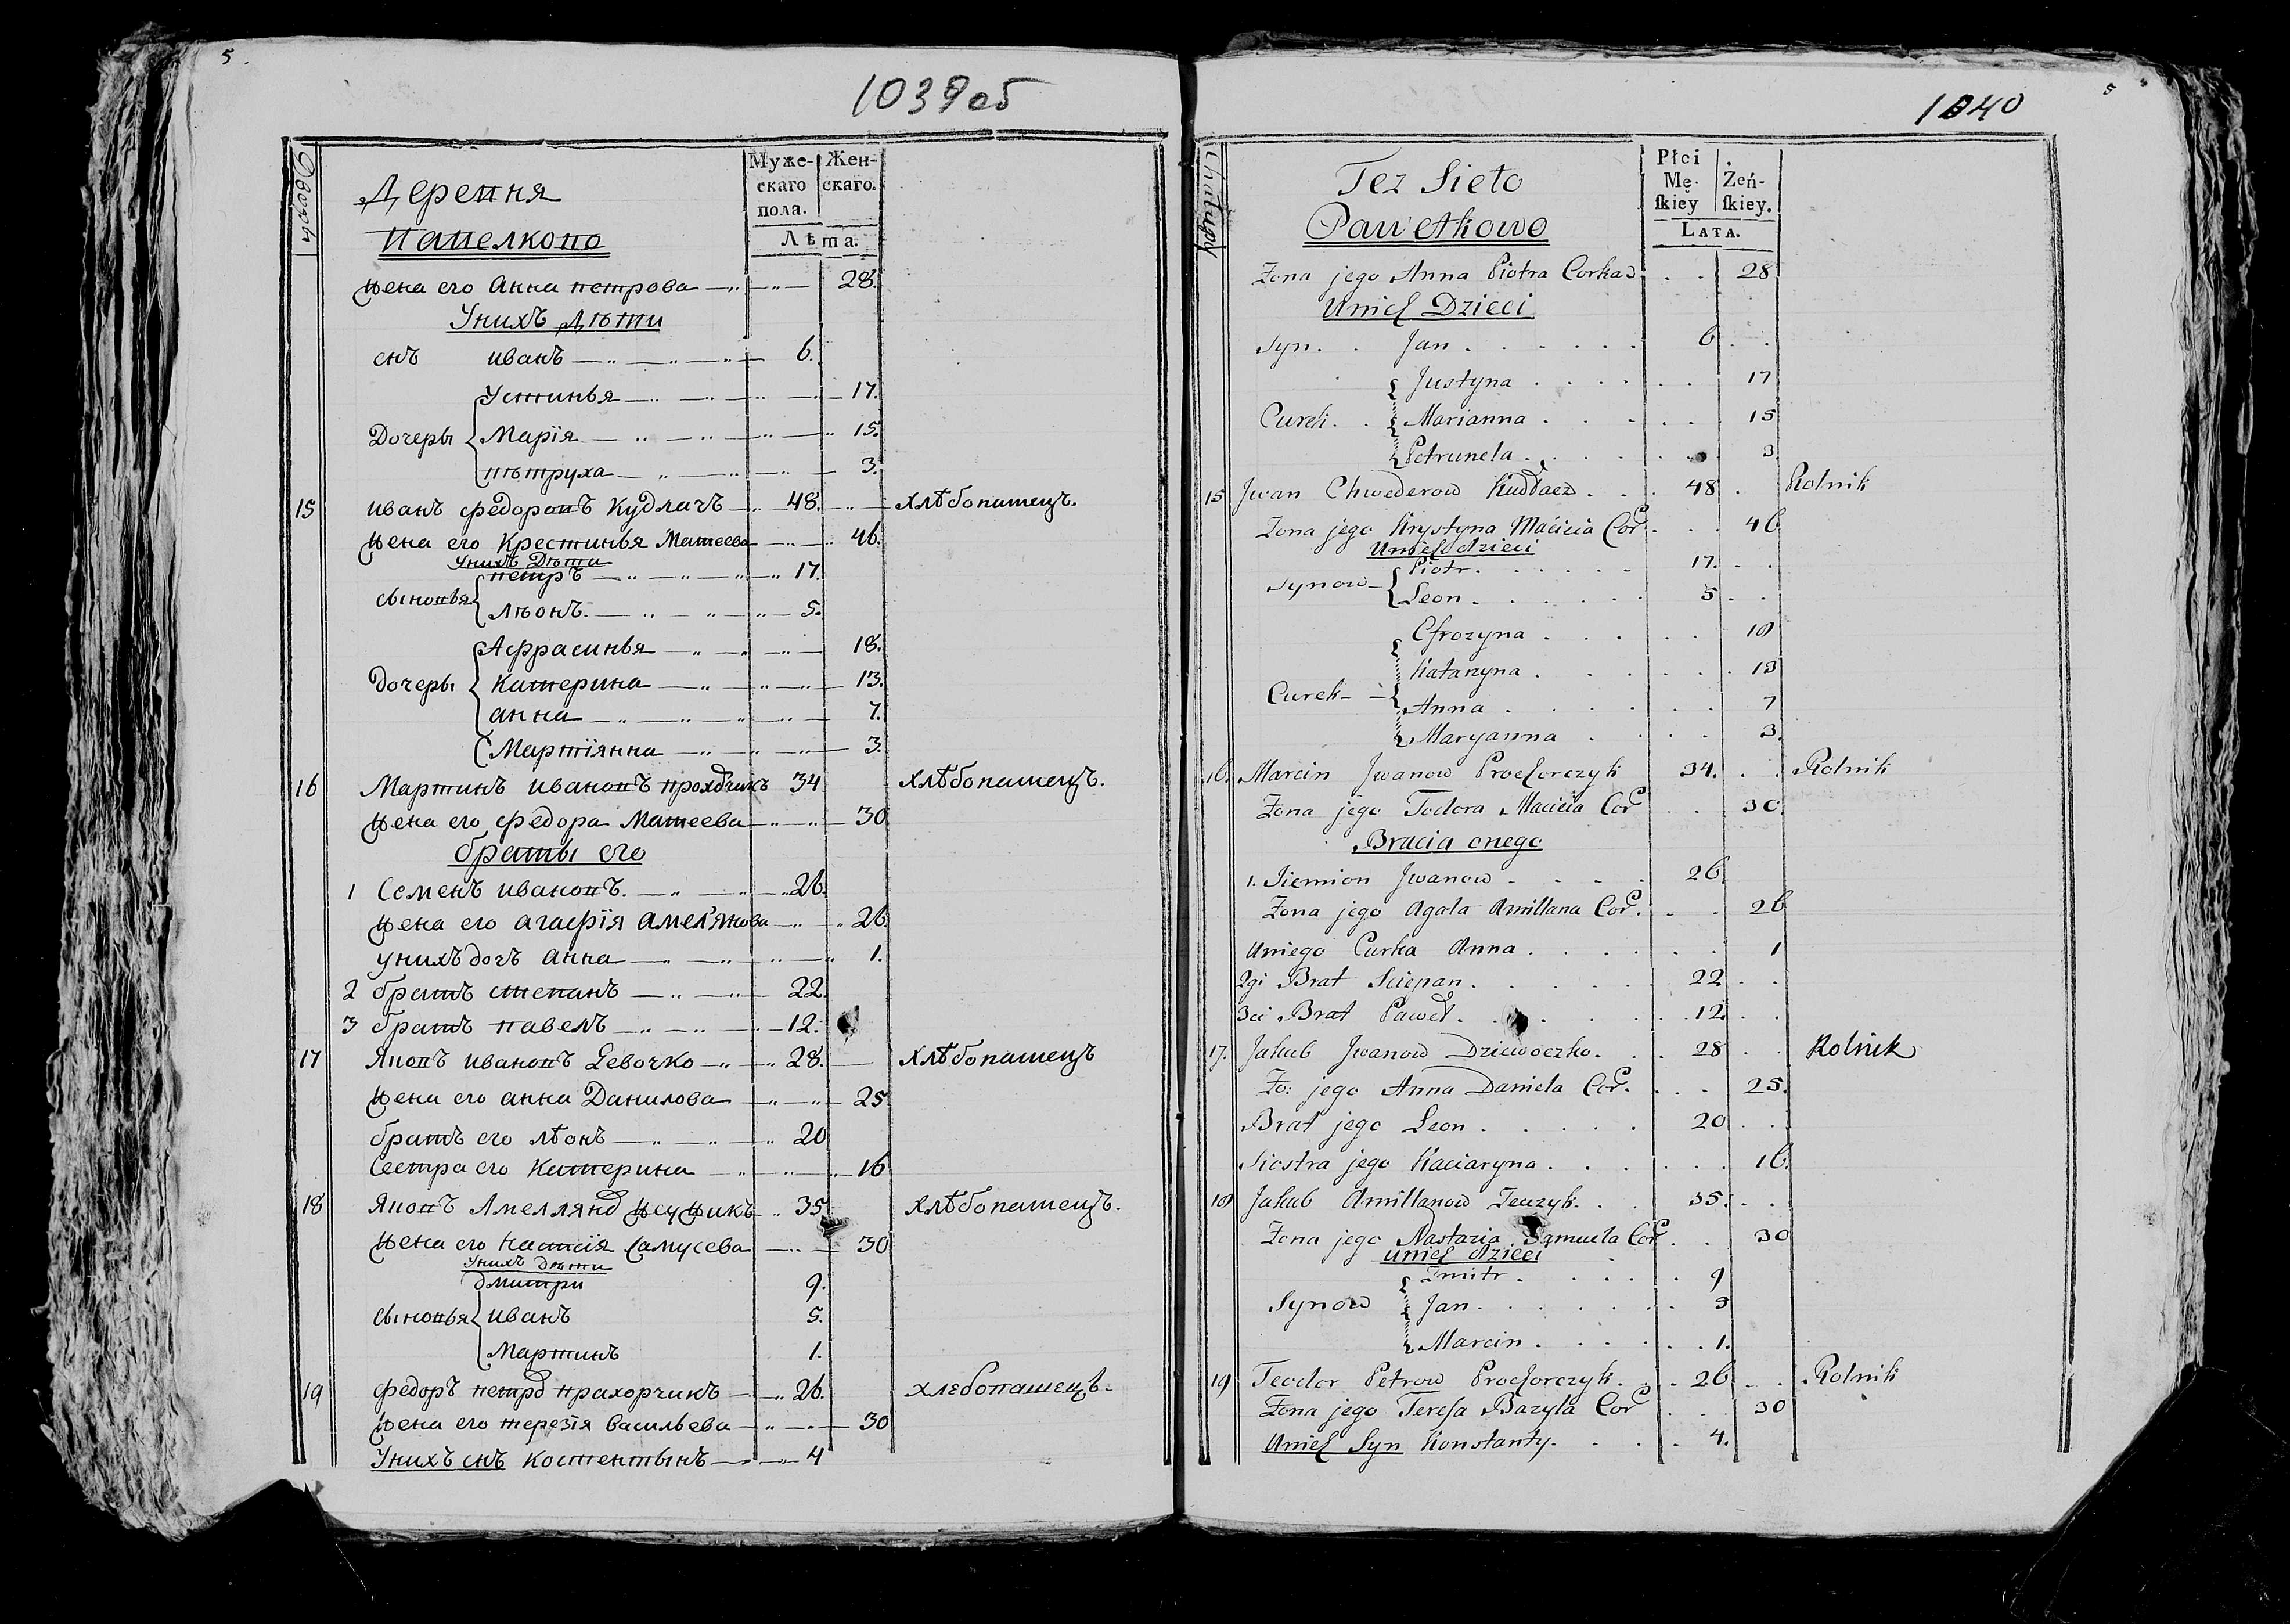 5.
1039об
Дворы
Деревня
Павелково
Муже-
скаго
пола.
Жен-
скаго.
Лѣта.
жена его Анна петрова 28.
Унихъ дѣти
снъ иванъ 6.
Устинья 17.
Дочеры Марїя 15.
пѣтруха 3.
15 иванъ федоровъ Кудлачъ 48. хлѣбопашецъ.
жена его Крестинья Матеева 46.
Унихъ Дѣти
петръ 17.
сыновья лѣонъ. 5.
Афрасинья 18.
дочеры Катерина 13.
анна 7.
Мартїянна 3.
16 Мартинъ ивановъ 34 хлѣбопашецъ.
жена его федора Матеева 30
браты его
1 Семенъ ивановъ. 26.
жена его агафїя амелянова 26.
унихъ дочъ анна 1.
2 братъ степанъ 22.
3 братъ павелъ 12.
17 Яковъ ивановъ Девочко 28. хлѣбопашецъ
жена его анна Данилова 25.
братъ его лѣонъ 20
Сестра его Катерина 16
18 35 хлѣбопашецъ.
жена его Настсїя Самусева 30
Унихъ дѣти
дмитри 9.
сыновья иванъ 5.
Мартинъ 1.
19 федоръ петро прахорчикъ 26. хлебопашецъ.
жена его терезїя васильева 30
Унихъ снъ костентынъ 4
5
1040
Chałupy
Tez Sieło
Pawełkowo
Płci
Mę-
skiey
Żeń-
skiey.
LATA.
Zona jego Anna Piotra Corka 28
Unich Dzieci
Syn. Jan 6
Justyna 17
Curek. Marianna 15
Petrunela 3.
15 Jwan Chwederow Kudłacz 48 Rolnik
Zona jego Krystyna Macieia Cor 46
Unich dzieci
Piotr 17.
Synow Leon 5
Efrozyna 18
Katarzyna 13
Curek Anna 7
Maryanna 3.
16. Marcin Jwanow Prochorczyk 34. Rolnik
Zona jego Todora Macieia Cor 30.
Bracia onego
1. Siemion Jwanow 26
Zona jego Agata Amillana Cor. 26
Uniego Curka Anna 1
2gi Brat Sciepan 22
3ci Brat Paweł 12
17. Jakub Jwanow Dziewoczko. 28 Rolnik
Zo: jego Anna Daniela Cor. 25.
Brat jego Leon 20
Siostra jego Kaciaryna 16.
18 Jakub Amillanow 35.
Zona jego Nastazia Samuela Cor 30
unich dzieci
Zmitr 9
Synow Jan 5
Marcin 1.
19 Teodor Petrow Prochorczyk. 26 Rolnik
Zona jego Teresa Bazyla Cor 30
Unich Syn Konstanty. 4.